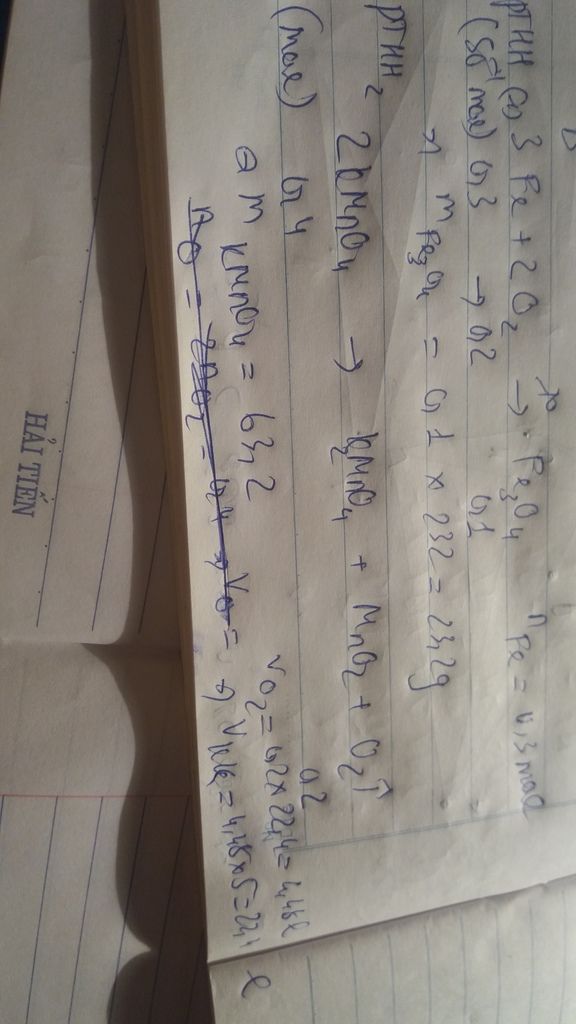 PTHH (1) 3 Fe + 2 O₂ →(t°) Fe₃O₄ nFe = 0,3 mol
(Số mol) 0,3 → 0,2 0,1
→ mFe₃O₄ = 0,1 × 232 = 23,2g
PTHH 2 2KMnO₄ → K₂MnO₄ + MnO₂ + O₂↑
(mol) 0,4 0,2
m KMnO₄ = 63,2
VO₂ = 0,2 × 22,4 = 4,48l
→ Vkk = 4,48 × 5 = 22,4 l
HẢI TIẾN